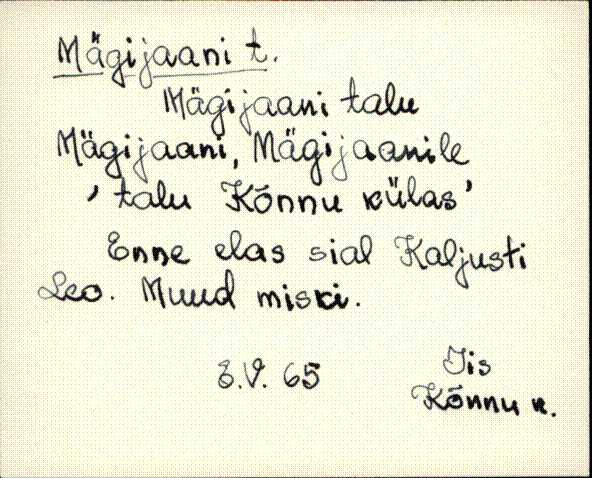 Mägijaani t.
Mägijaani talu
Mägijaani, Mägijaanile
' talu Kõnnu külas'
Enne elas sial Kaljusti
Leo. Muud miski.
E.V. 65 Iis
Kõnnu k.